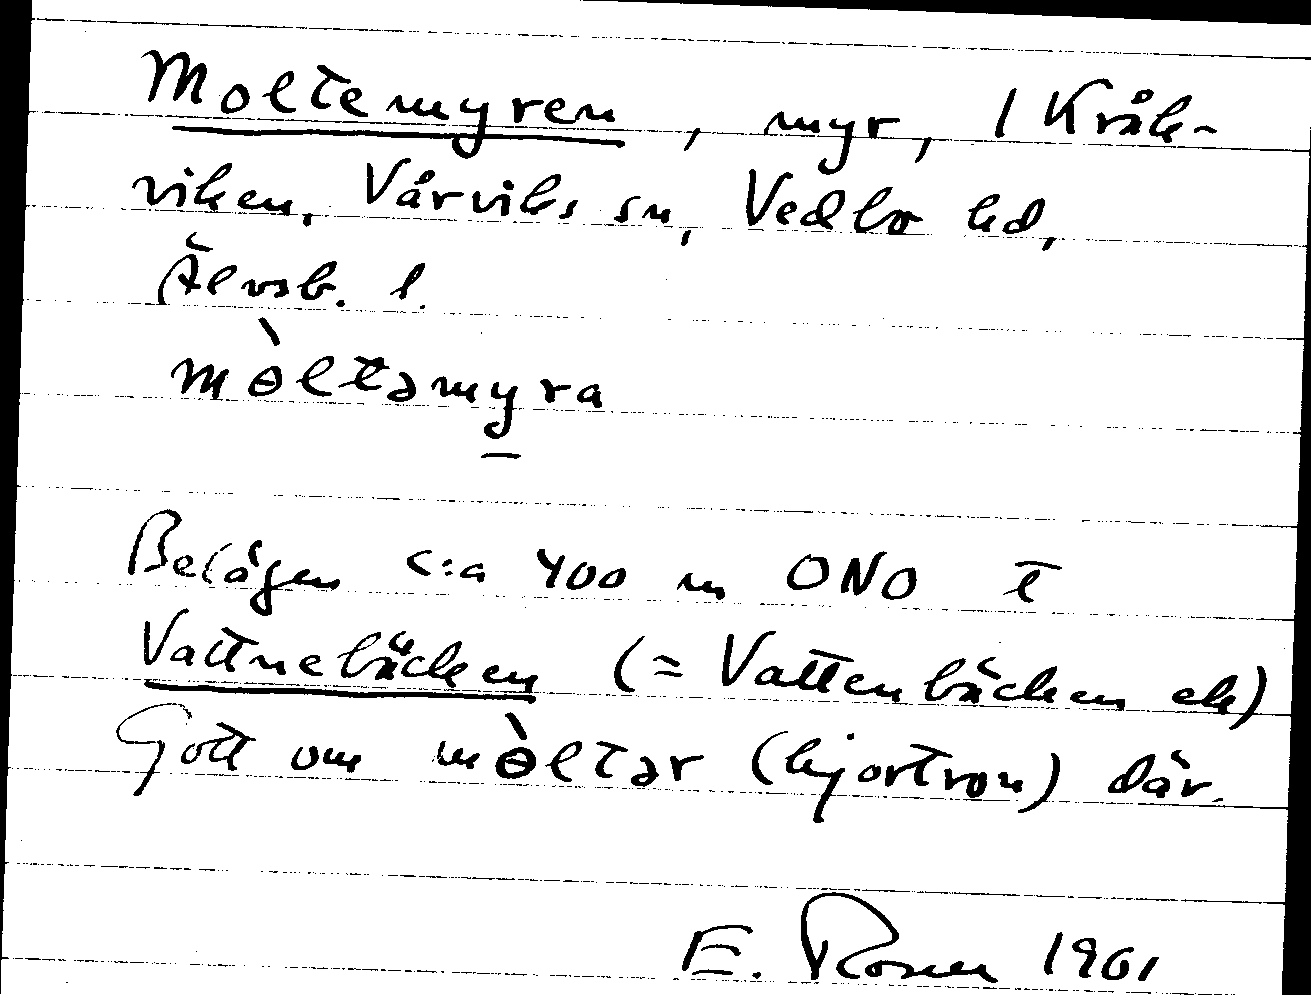 Moltemyren, myr, 1 Kråk-
viken, Vårviks sn, Vedbo hd,
Älvsb. l.
mɵ̀ltəmyra
Belägen c:a 400 m ONO t
Vattnebäcken (= Vattenbäcken ek)
Gott om mɵ̀ltər (hjortron) där.
E. Rosen 1961